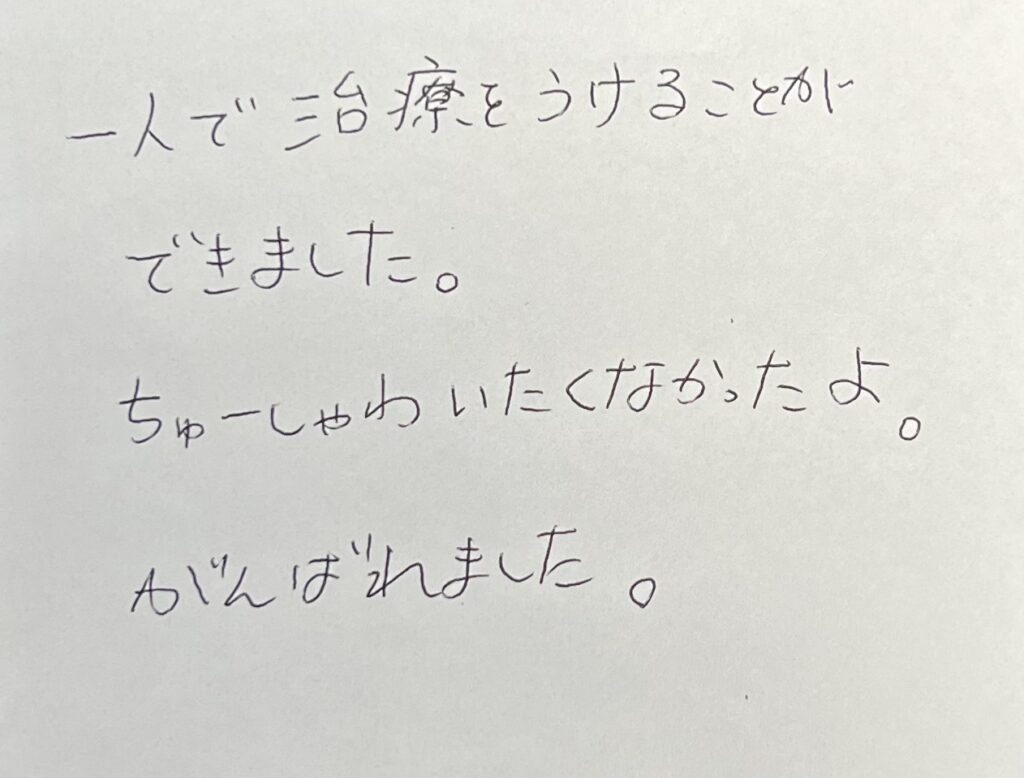 一人で治療をうけることが
できました。
ちゅーしゃわいたくなかったよ。
がんばれました。